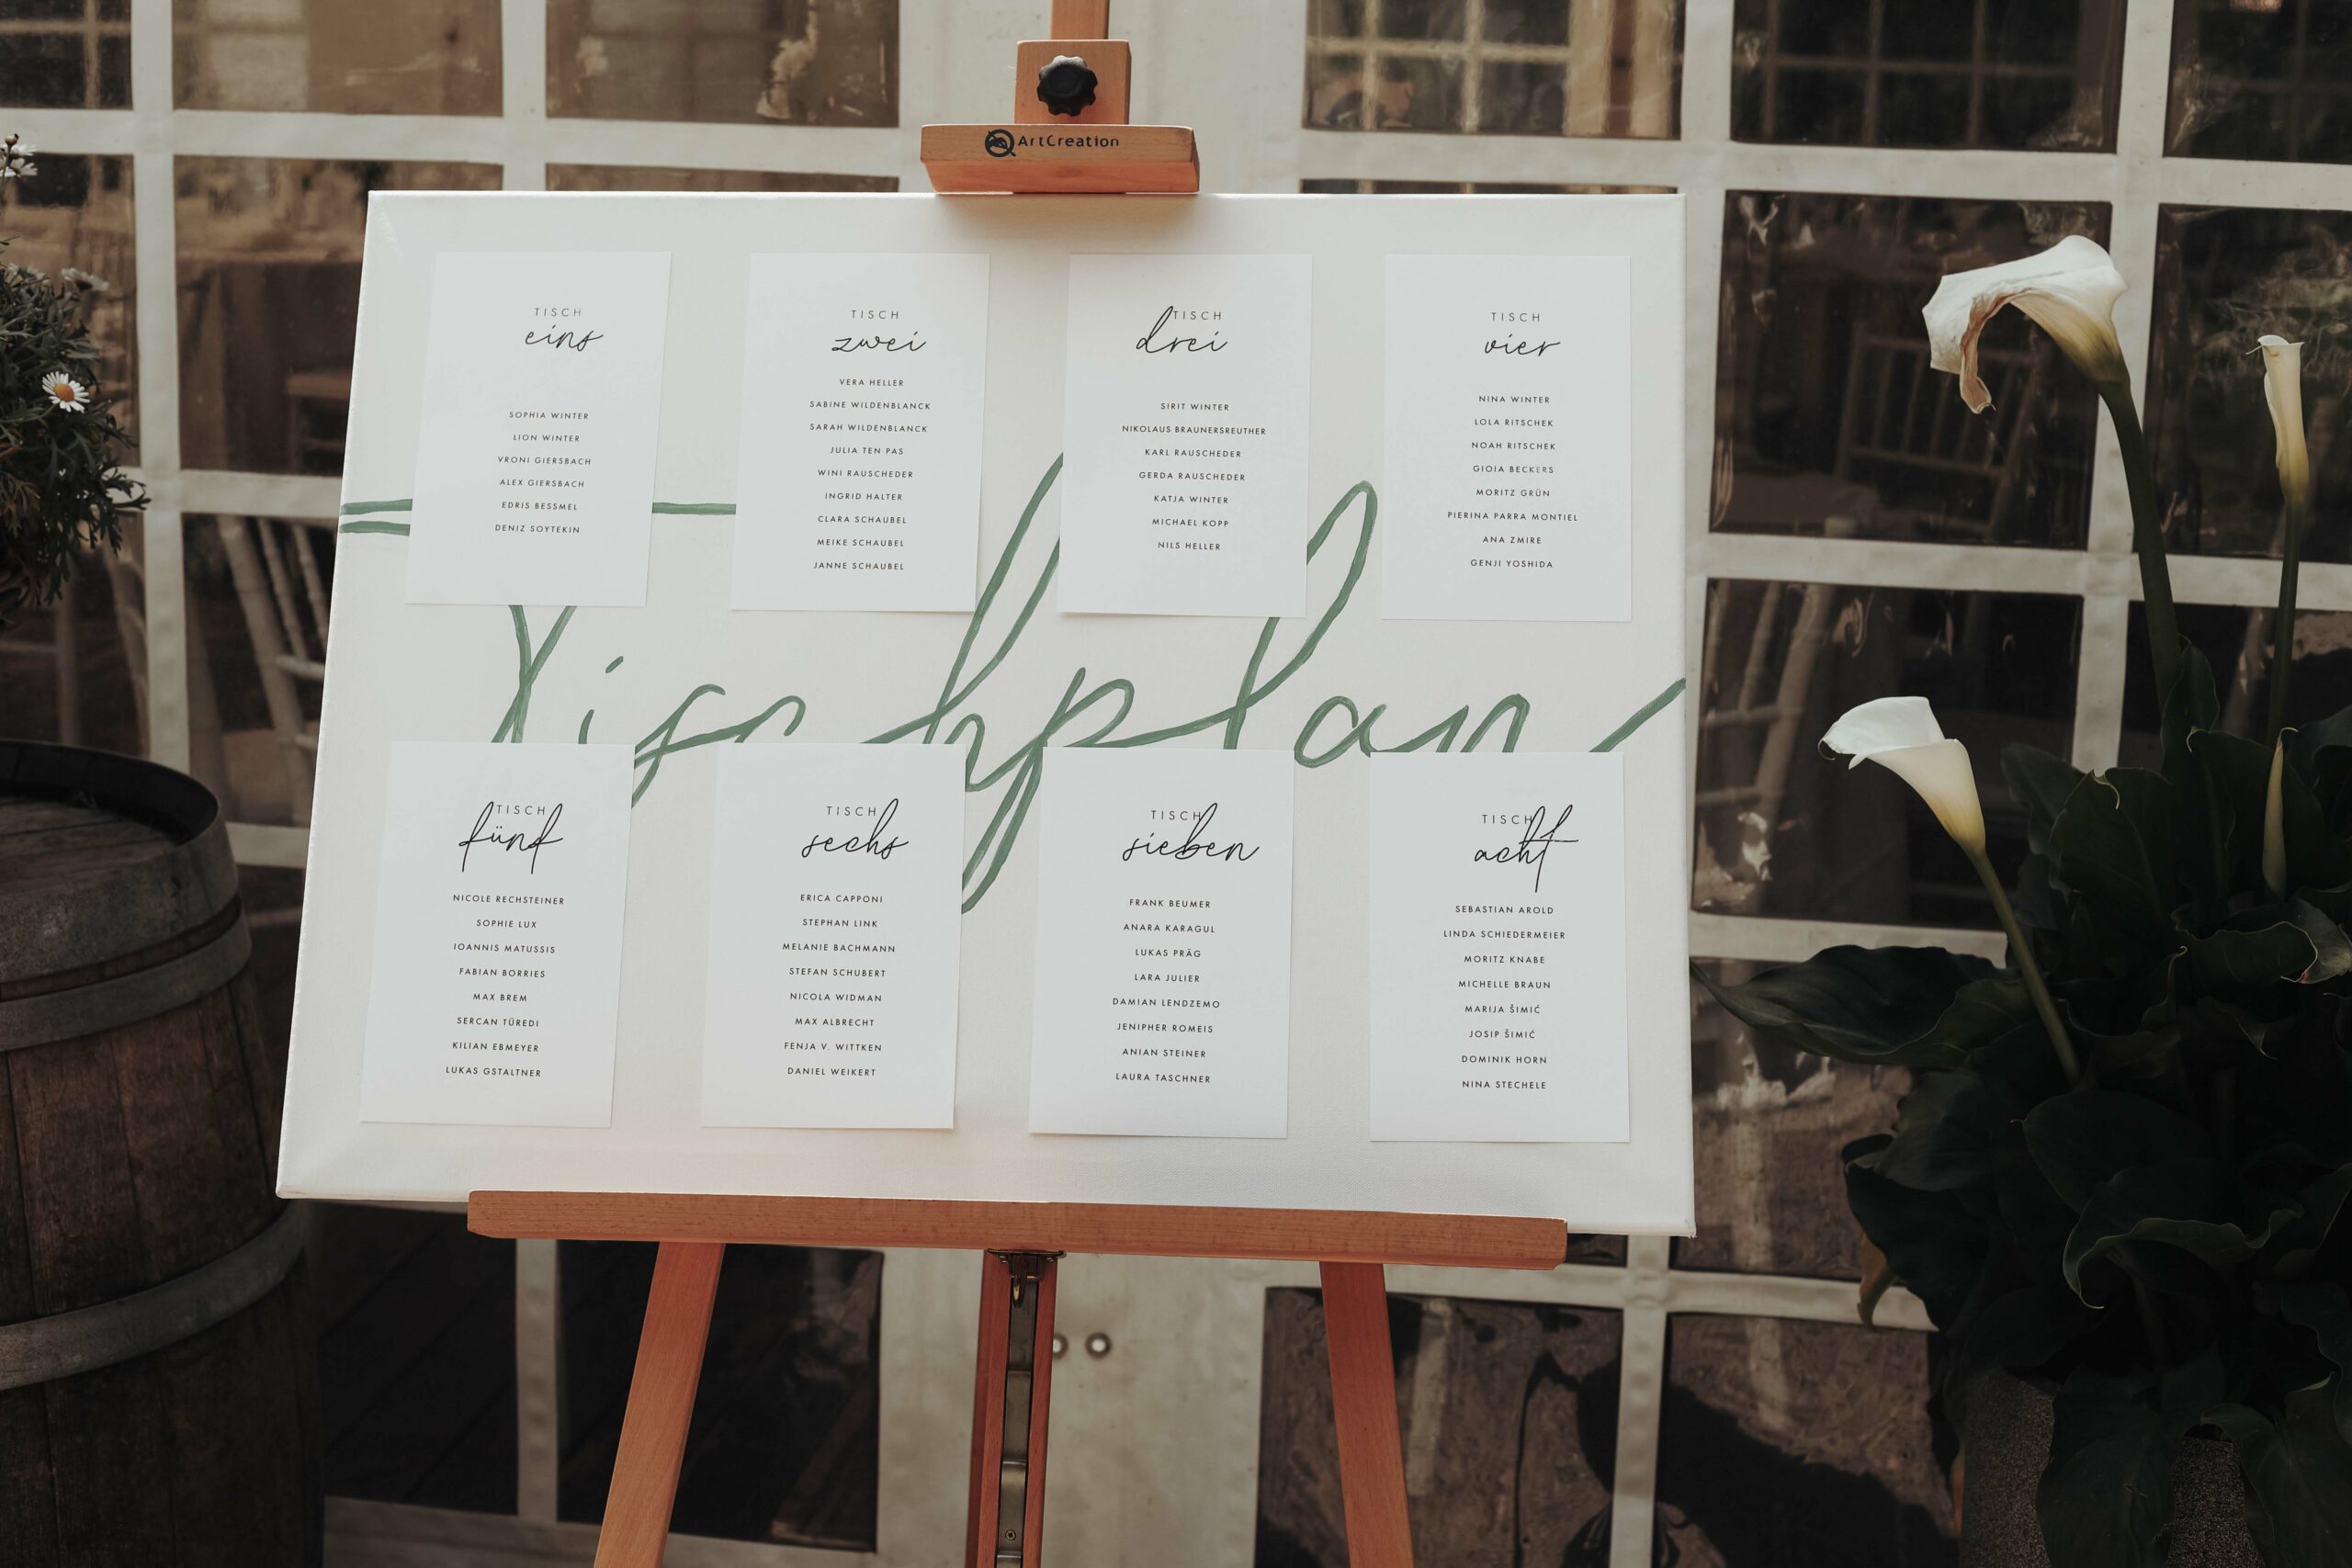 ArtCreation
Tischplan
TISCH
eins
SOPHIA WINTER
LION WINTER
VRONI GIERSBACH
ALEX GIERSBACH
EDRIS BESSMEL
DENIZ SOYTEKIN
TISCH
zwei
VERA HELLER
SABINE WILDENBLANCK
SARAH WILDENBLANCK
JULIA TEN PAS
WINI RAUSCHEDER
INGRID HALTER
CLARA SCHAUBEL
MEIKE SCHAUBEL
JANNE SCHAUBEL
TISCH
drei
SIRIT WINTER
NIKOLAUS BRAUNERSREUTHER
KARL RAUSCHEDER
GERDA RAUSCHEDER
KATJA WINTER
MICHAEL KOPP
NILS HELLER
TISCH
vier
NINA WINTER
LOLA RITSCHEK
NOAH RITSCHEK
GIOIA BECKERS
MORITZ GRÜN
PIERINA PARRA MONTIEL
ANA ZMIRE
GENJI YOSHIDA
TISCH
fünf
NICOLE RECHSTEINER
SOPHIE LUX
IOANNIS MATUSSIS
FABIAN BORRIES
MAX BREM
SERCAN TÜREDI
KILIAN EBMEYER
LUKAS GSTALTNER
TISCH
sechs
ERICA CAPPONI
STEPHAN LINK
MELANIE BACHMANN
STEFAN SCHUBERT
NICOLA WIDMAN
MAX ALBRECHT
FENJA V. WITTKEN
DANIEL WEIKERT
TISCH
sieben
FRANK BEUMER
ANARA KARAGUL
LUKAS PRÄG
LARA JULIER
DAMIAN LENDZEMO
JENIPHER ROMEIS
ANIAN STEINER
LAURA TASCHNER
TISCH
acht
SEBASTIAN AROLD
LINDA SCHIEDERMEIER
MORITZ KNABE
MICHELLE BRAUN
MARIJA ŠIMIĆ
JOSIP ŠIMIĆ
DOMINIK HORN
NINA STECHELE